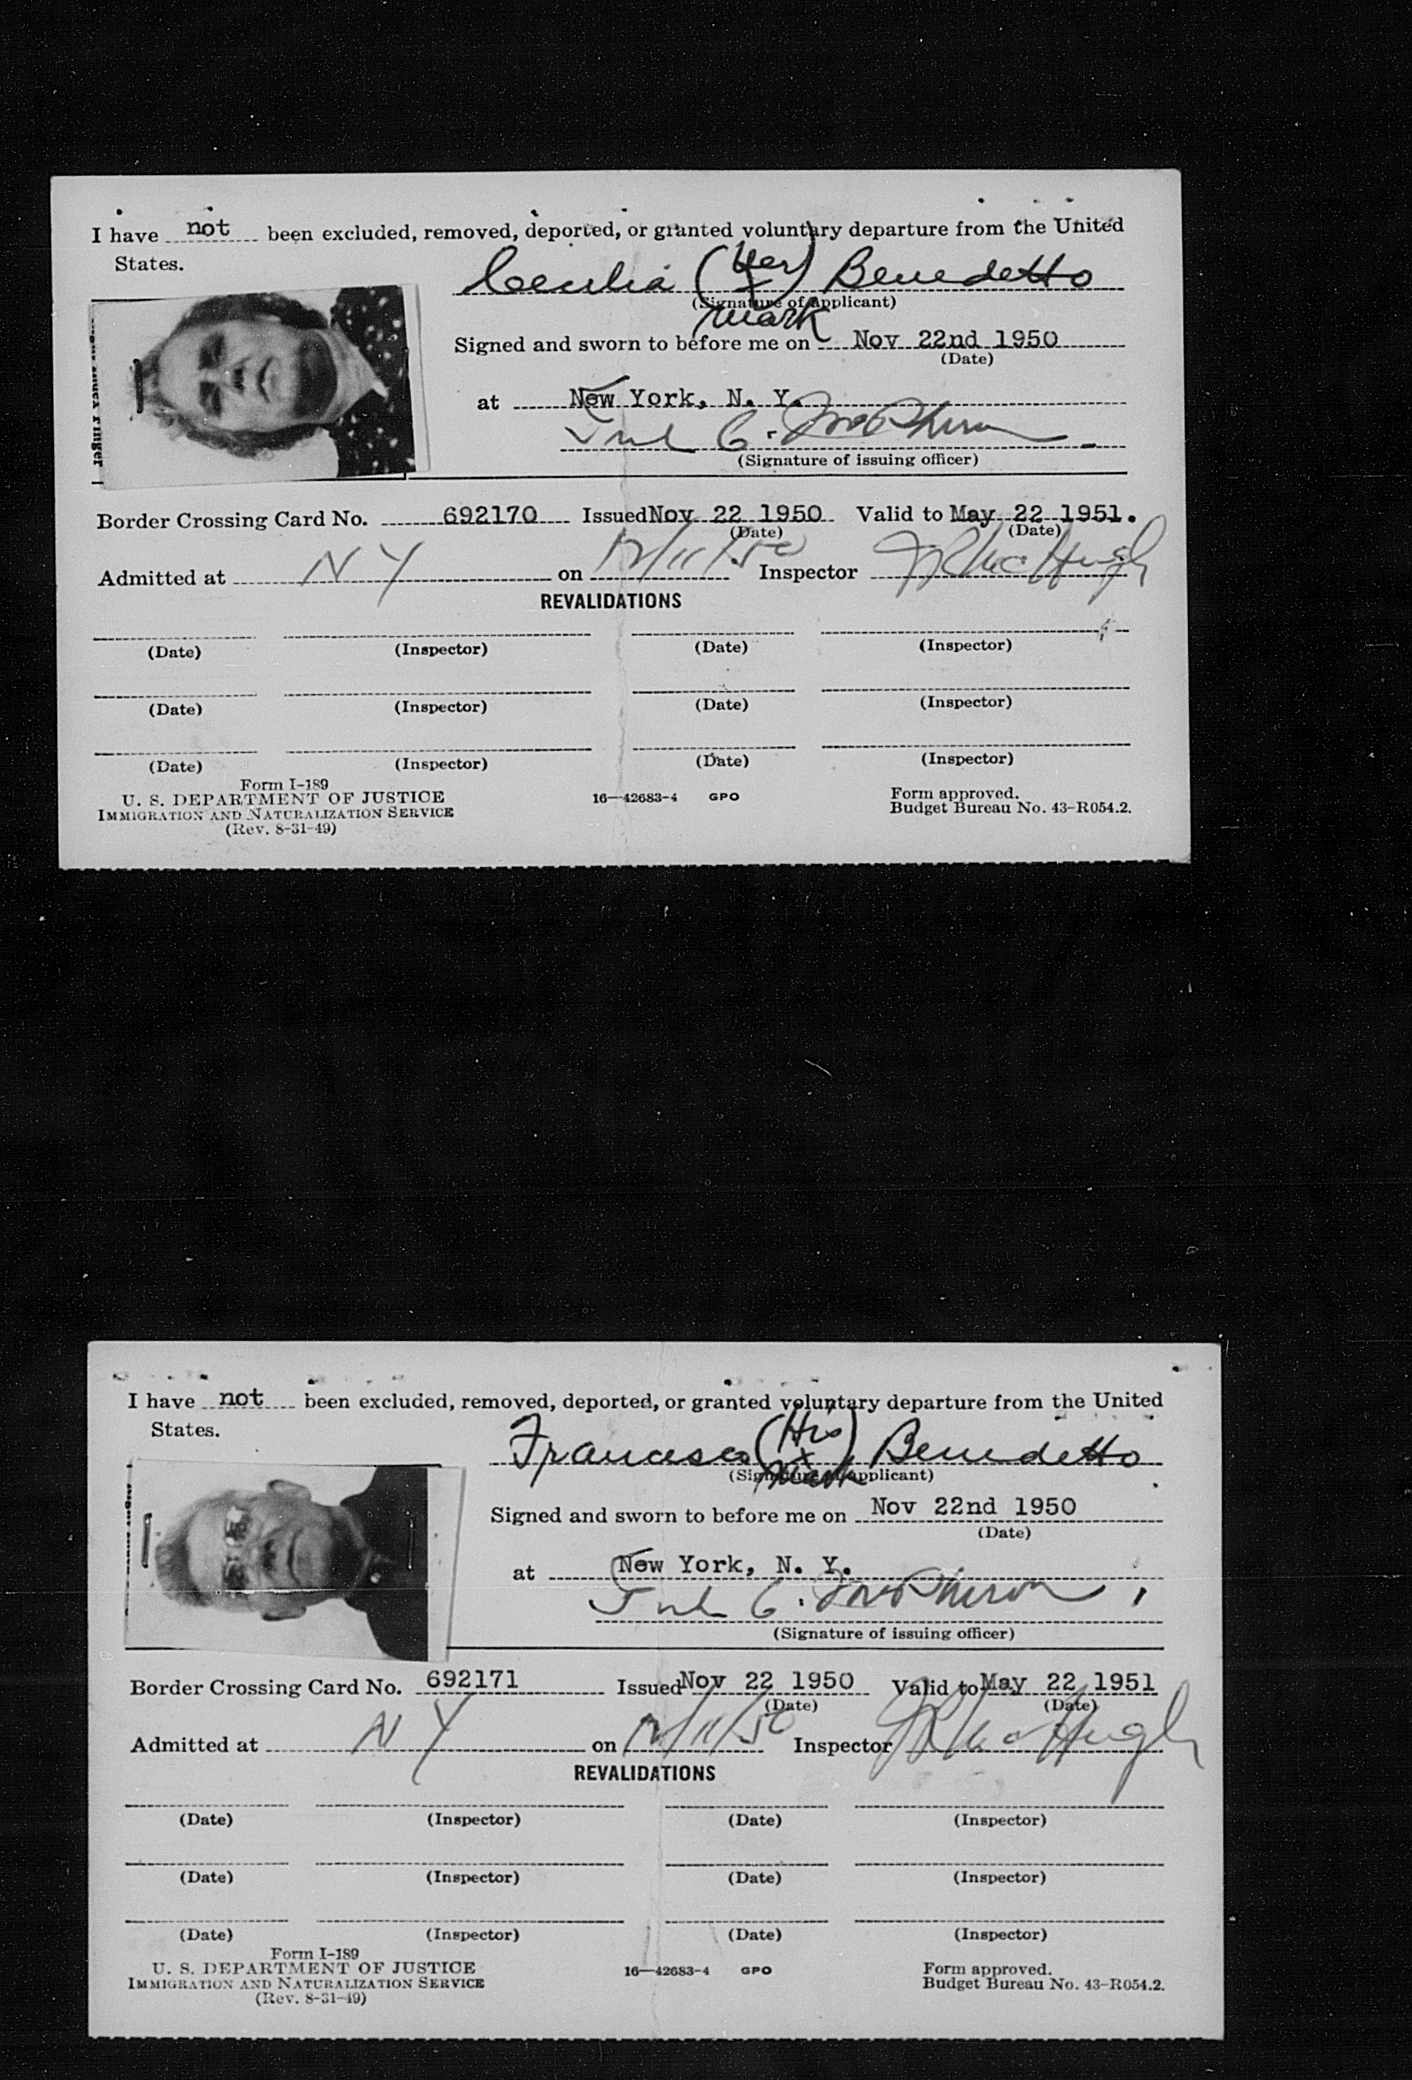 I have not been excluded, removed, deported, or granted voluntary departure from the United
States.
Cecilia (Her X mark) Benedetto
(Signature of applicant)
Signed and sworn to before me on Nov 22nd 1950
(Date)
at New York, N. Y.
(Signature of issuing officer)
Border Crossing Card No. 692170 Issued Nov 22 1950 Valid to May 22 1951.
(Date) (Date)
Admitted at N Y on 12/11/50 Inspector
REVALIDATIONS
(Date) (Inspector) (Date) (Inspector)
(Date) (Inspector) (Date) (Inspector)
(Date) (Inspector) (Date) (Inspector)
Form I-189
U. S. DEPARTMENT OF JUSTICE 16—42683-4 GPO Form approved.
IMMIGRATION AND NATURALIZATION SERVICE Budget Bureau No. 43-R054.2.
(Rev. 8-31-49)
I have not been excluded, removed, deported, or granted voluntary departure from the United
States.
Francesco (His X mark) Benedetto
(Signature of applicant)
Signed and sworn to before me on Nov 22nd 1950
(Date)
at New York, N. Y.
(Signature of issuing officer)
Border Crossing Card No. 692171 Issued Nov 22 1950 Valid to May 22 1951
(Date) (Date)
Admitted at N Y on 12/11/50 Inspector
REVALIDATIONS
(Date) (Inspector) (Date) (Inspector)
(Date) (Inspector) (Date) (Inspector)
(Date) (Inspector) (Date) (Inspector)
Form I-189
U. S. DEPARTMENT OF JUSTICE 16—42683-4 GPO Form approved.
IMMIGRATION AND NATURALIZATION SERVICE Budget Bureau No. 43-R054.2.
(Rev. 8-31-49)